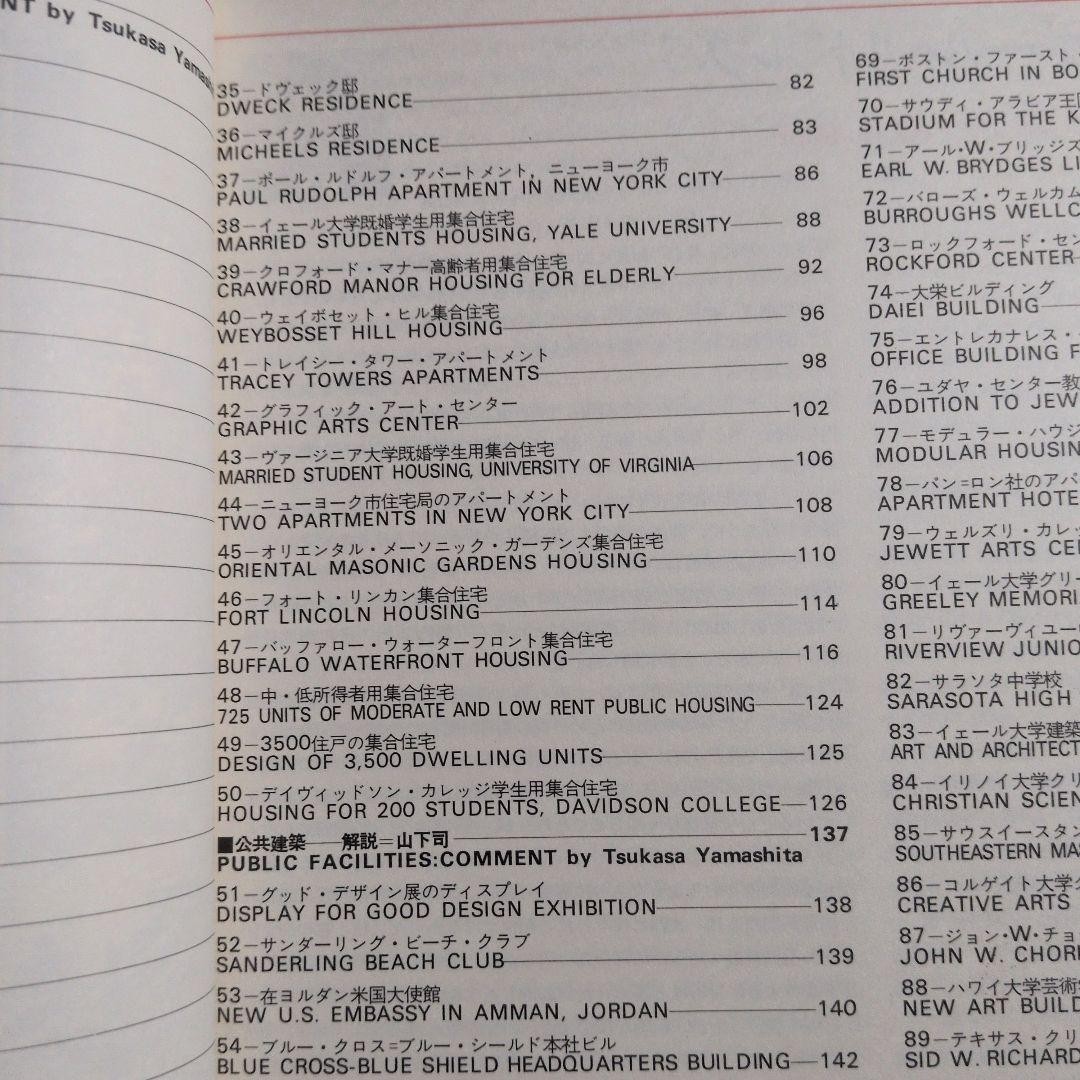 NT by Tsukasa Yamash
35－ドヴェック邸
DWECK RESIDENCE 82
36－マイクルズ邸
MICHEELS RESIDENCE 83
37－ポール・ルドルフ・アパートメント，ニューヨーク市
PAUL RUDOLPH APARTMENT IN NEW YORK CITY 86
38－イェール大学既婚学生用集合住宅
MARRIED STUDENTS HOUSING, YALE UNIVERSITY 88
39－クロフォード・マナー高齢者用集合住宅
CRAWFORD MANOR HOUSING FOR ELDERLY 92
40－ウェイボセット・ヒル集合住宅
WEYBOSSET HILL HOUSING 96
41－トレイシー・タワー・アパートメント
TRACEY TOWERS APARTMENTS 98
42－グラフィック・アート・センター
GRAPHIC ARTS CENTER 102
43－ヴァージニア大学既婚学生用集合住宅
MARRIED STUDENT HOUSING, UNIVERSITY OF VIRGINIA 106
44－ニューヨーク市住宅局のアパートメント
TWO APARTMENTS IN NEW YORK CITY 108
45－オリエンタル・メーソニック・ガーデンズ集合住宅
ORIENTAL MASONIC GARDENS HOUSING 110
46－フォート・リンカン集合住宅
FORT LINCOLN HOUSING 114
47－バッファロー・ウォーターフロント集合住宅
BUFFALO WATERFRONT HOUSING 116
48－中・低所得者用集合住宅
725 UNITS OF MODERATE AND LOW RENT PUBLIC HOUSING 124
49－3500住戸の集合住宅
DESIGN OF 3,500 DWELLING UNITS 125
50－デイヴィッドソン・カレッジ学生用集合住宅
HOUSING FOR 200 STUDENTS, DAVIDSON COLLEGE 126
■公共建築――解説＝山下司 137
PUBLIC FACILITIES:COMMENT by Tsukasa Yamashita
51－グッド・デザイン展のディスプレイ
DISPLAY FOR GOOD DESIGN EXHIBITION 138
52－サンダーリング・ビーチ・クラブ
SANDERLING BEACH CLUB 139
53－在ヨルダン米国大使館
NEW U.S. EMBASSY IN AMMAN, JORDAN 140
54－ブルー・クロス=ブルー・シールド本社ビル
BLUE CROSS-BLUE SHIELD HEADQUARTERS BUILDING 142
69－ボストン・ファースト・
FIRST CHURCH IN BO
70－サウディ・アラビア王国
STADIUM FOR THE K
71－アール・W・ブリッジズ
EARL W. BRYDGES LI
72－バローズ・ウェルカム
BURROUGHS WELLC
73－ロックフォード・セン
ROCKFORD CENTER
74－大栄ビルディング
DAIEI BUILDING
75－エントレカナレス・
OFFICE BUILDING F
76－ユダヤ・センター教
ADDITION TO JEW
77－モデュラー・ハウジ
MODULAR HOUSIN
78－バン=ロン社のアパ
APARTMENT HOTE
79－ウェルズリ・カレッ
JEWETT ARTS CE
80－イェール大学グリー
GREELEY MEMORI
81－リヴァーヴィュー
RIVERVIEW JUNIO
82－サラソタ中学校
SARASOTA HIGH
83－イェール大学建築
ART AND ARCHITECT
84－イリノイ大学クリ
CHRISTIAN SCIEN
85－サウスイースタン
SOUTHEASTERN MAS
86－コルゲイト大学
CREATIVE ARTS
87－ジョン・W・チョー
JOHN W. CHOR
88－ハワイ大学芸術
NEW ART BUILD
89－テキサス・クリ
SID W. RICHARD